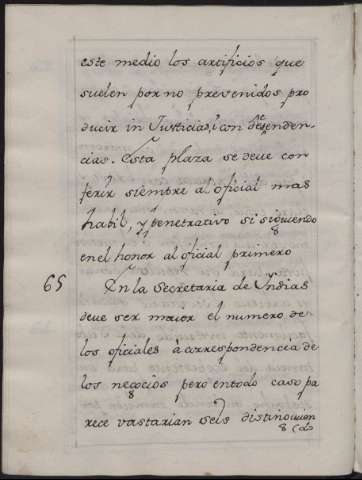 este medio los artificios que
suelen por no prevenidos pro
ducir inJusticias, i condesenden-
cias. Esta plaza se deve con
ferir siempre al oficial mas
habil, y penetrativo si siguiendo
en el honor al oficial primero
65 En la Secretaria de Yndias
deve ser maior el numero de
los oficiales à correspondencia de
los negocios pero entodo caso pa
rece vastarian seis distinguien
dolos